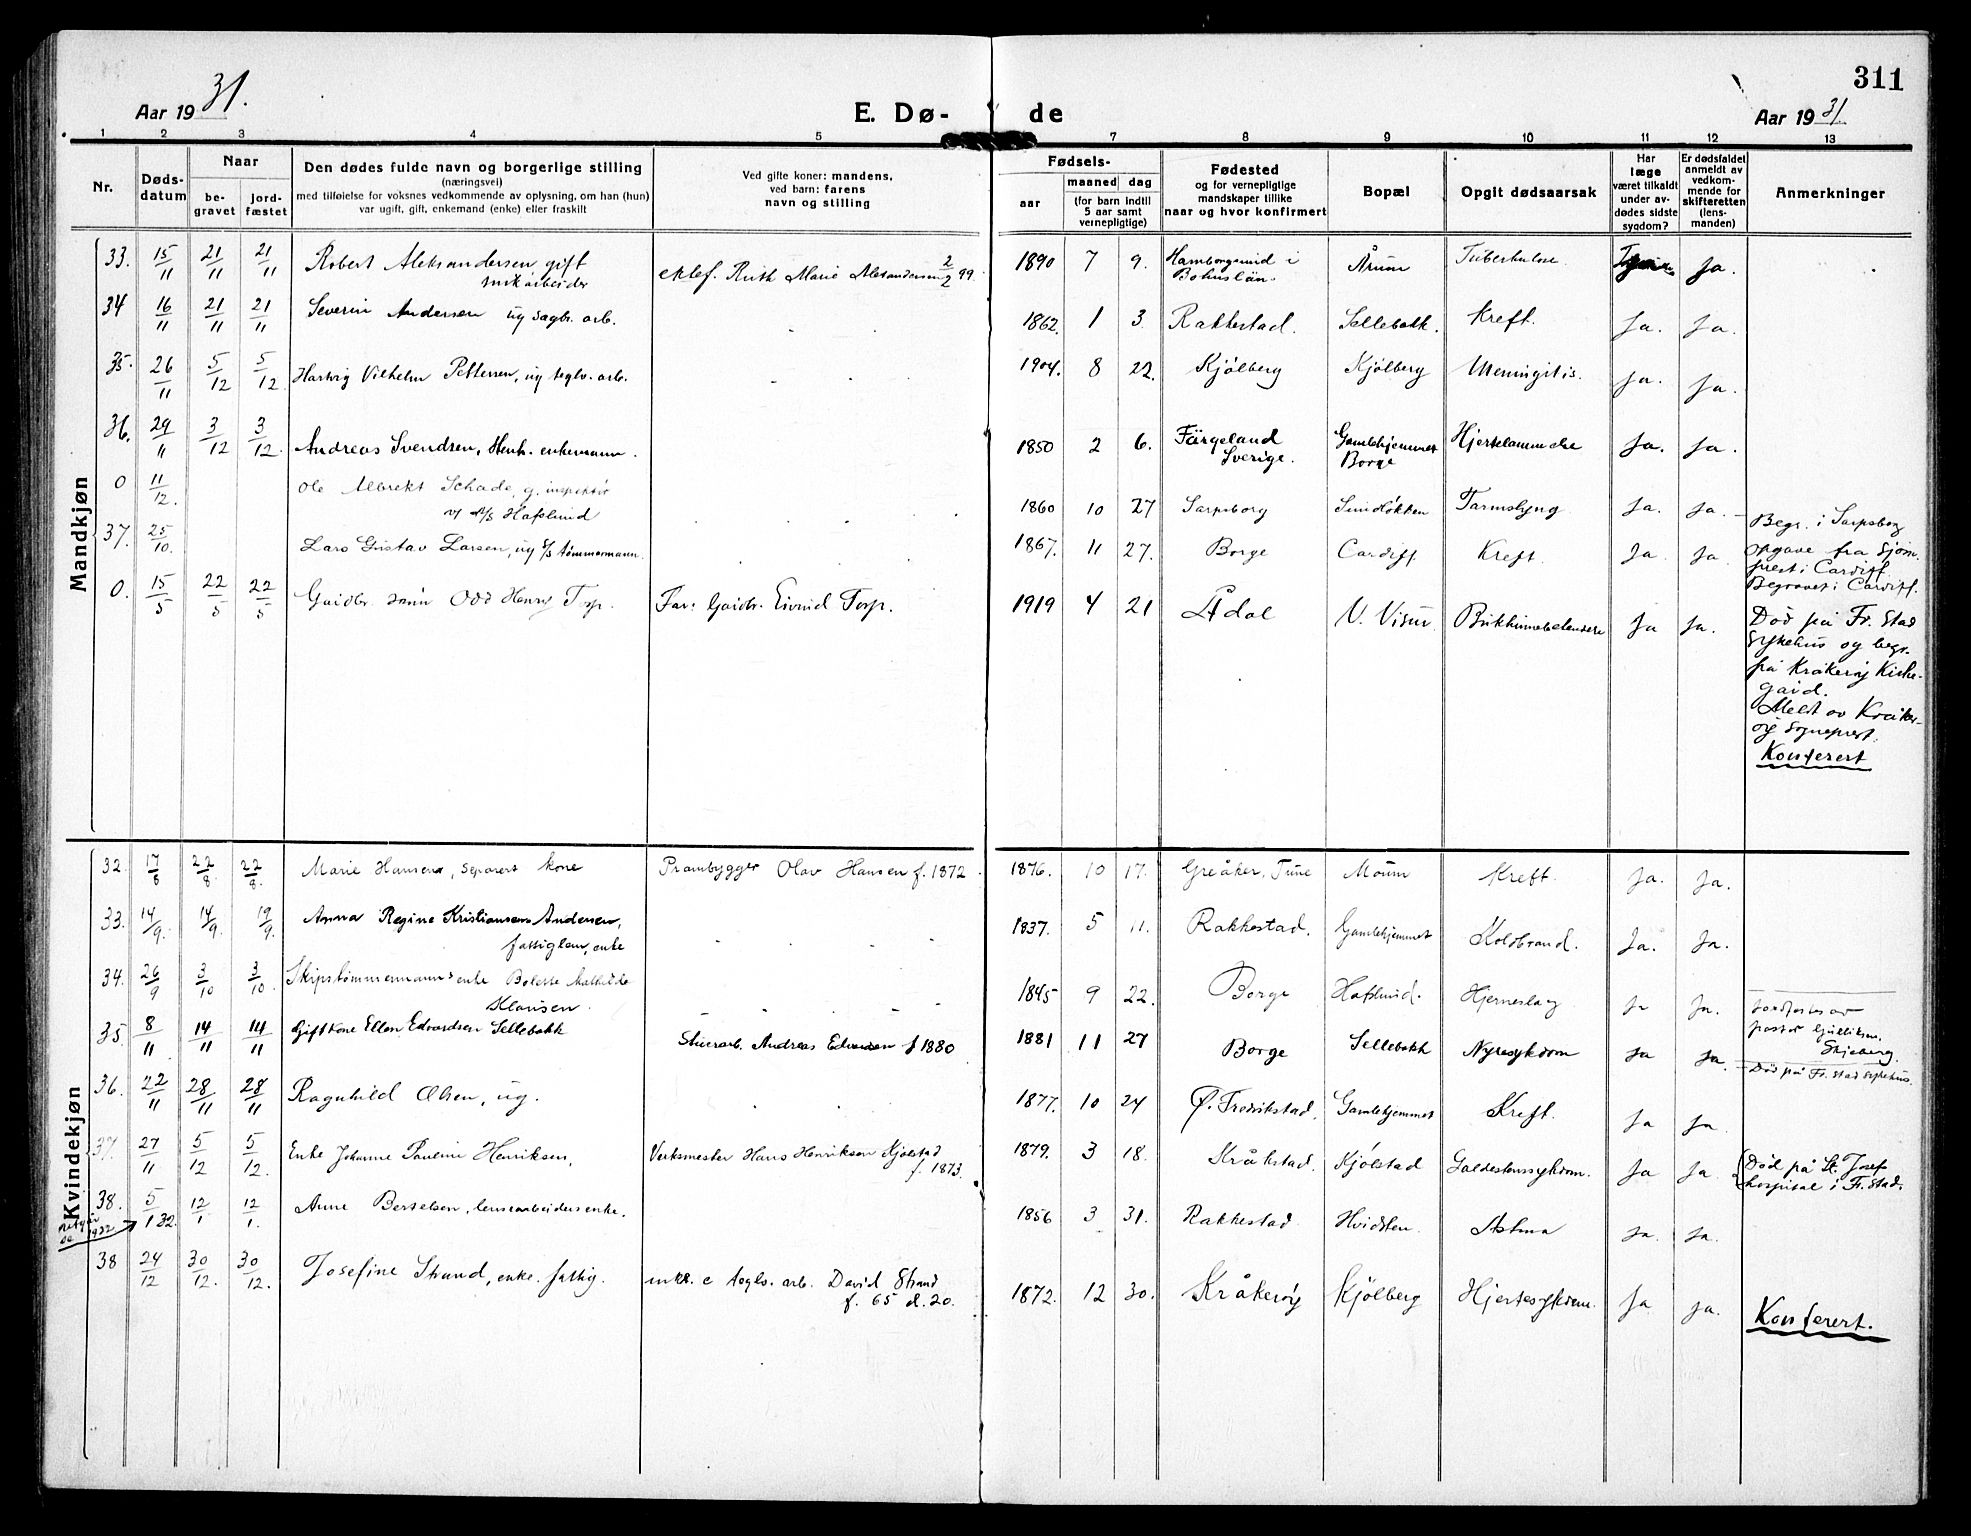 311
Aar 1931.
E. Dø-
de
Aar 1931.
1 2 3 4 5 7 8 9 10 11 12 13
Nr.
Døds-
datum
Naar
be-
gravet
jord-
fæstet
Den dødes fulde navn og borgerlige stilling
(næringsvei)
med tilføielse for voksnes vedkommende av oplysning, om han (hun)
var ugift, gift, enkemand (enke) eller fraskilt
Ved gifte koner: mandens,
ved barn: farens
navn og stilling
Fødsels-
aar
maaned dag
(for barn indtil
5 aar samt
vernepligtige)
Fødested
og for vernepligtige
mandskaper tillike
naar og hvor konfirmert
Bopæl
Opgit dødsaarsak
Har
læge
været tilkaldt
under av-
dødes sidste
sygdom?
Er dødsfaldet
anmeldt av
vedkom-
mende for
skifteretten
(lens-
manden)
Anmerkninger
Mandkjøn
33. 15/11 21/11 21/11 Robert Aleksandersen gift
ekef. Ruth Marie Alexandersen 2/2 99. 1890 7 9. Hamborgsund i
Bohuslän Årum Tuberkulose Ja.
34 16/11 21/11 21/11 Severin Andersen ug sagbr. arb. 1862. 1 3. Rakkestad. Sellebakk. Kreft. Ja. Ja.
35. 26/11 5/12 5/12 Hartvig Vilhelm Pettersen, ug teglv. arb. 1904. 8 22. Kjølberg Kjølberg Meningitis. Ja. Ja.
36. 29/11 3/12 3/12. Andreas Svendsen, Stenh. enkemann. 1850 2 6. Färgeland
Sverige. Gamlehjemmet
Borge Hjertelammelse Ja. Ja.
0 11/12. Ole Albrekt Schade, g. inspektør
v/ A/S Hafslund 1860 10 27 Sarpsborg Tarmslyng Ja. Ja. Begr. i Sarpsborg
37. 25/10. Lars Gustav Larsen, ug S/S tømmermann. 1867. 11 27. Borge Cardiff Kreft. Ja Ja opgave fra Sjøm.
prest i Cardiff
Begravet i Cardiff.
0. 15/5 22/5 22/5 Gårdbr. sønn Odd Henry Torp. Far: Gårdbr. Eivind Torp. 1919 4 21 Ådal V. Visur. Bukhinnebetendelse Ja Ja. Død på Fr. stad
Sykehus og begr.
på Kråkerøy Kirke-
gård.
Meldt av Kråker-
øy sogneprest.
Konferert
Kvindekjøn
32. 17/8 22/8. 22/8. Marie Hansen, separert kone Prambygger Olav Hansen f. 1872. 1876. 10 17. Greåker, Tune Moum Kreft. Ja. Ja.
33. 14/9. 19/9. 19/9. Anna Regine Kristiansen Andersen,
fattiglem, enke 1837. 5 11. Rakkestad. Gamlehjemmet Koldbrand. Ja. Ja.
34. 26/9 3/10 3/10. Skipstømmermanns enke Bolette Mathilde
Klausen. 1845 9 22. Borge Hafslund. Hjerneslag Ja Ja. Jordfestes av
pastor Gulliksen.
Skjeberg.
35. 8/11 14/11 14/11 Gift kone Ellen Edvardsen Sellebakk Stuerarb. Andreas Edvardsen f 1880 1881 11 27 Borge Sellebakk Nyresykdom Ja Ja. Død på Fr. stad sykehus.
36. 22/11 28/11 28/11 Ragnhild Olsen, ug. 1877. 10 24 Ø. Fredrikstad. Gamlehjemmet Kreft. Ja Ja.
37. 27/11 5/12 5/12. Enke Johanne Pauline Henriksen, Verksmester Hans Henriksen Kjølstad
f. 1873. 1879. 3 18. Kråkstad. Kjølstad Galdestenssykdom. Ja Ja. Død på St. Josef
hospital i Fr. stad.
38. 5/1 32. 12/1 12/1. Anne Bertelsen, lensearbeiders enke. 1856 3 31. Rakkestad. Hvidsten Astma Ja. Ja.
38 24/12 30/12. 30/12. Josefine Strand, enke. fattig. enke e teglv. arb. David Strand
f. 65 d. 20. 1872. 12 30. Kråkerøy Kjølberg Hjertesykdom. Ja. Ja.
Konferert.